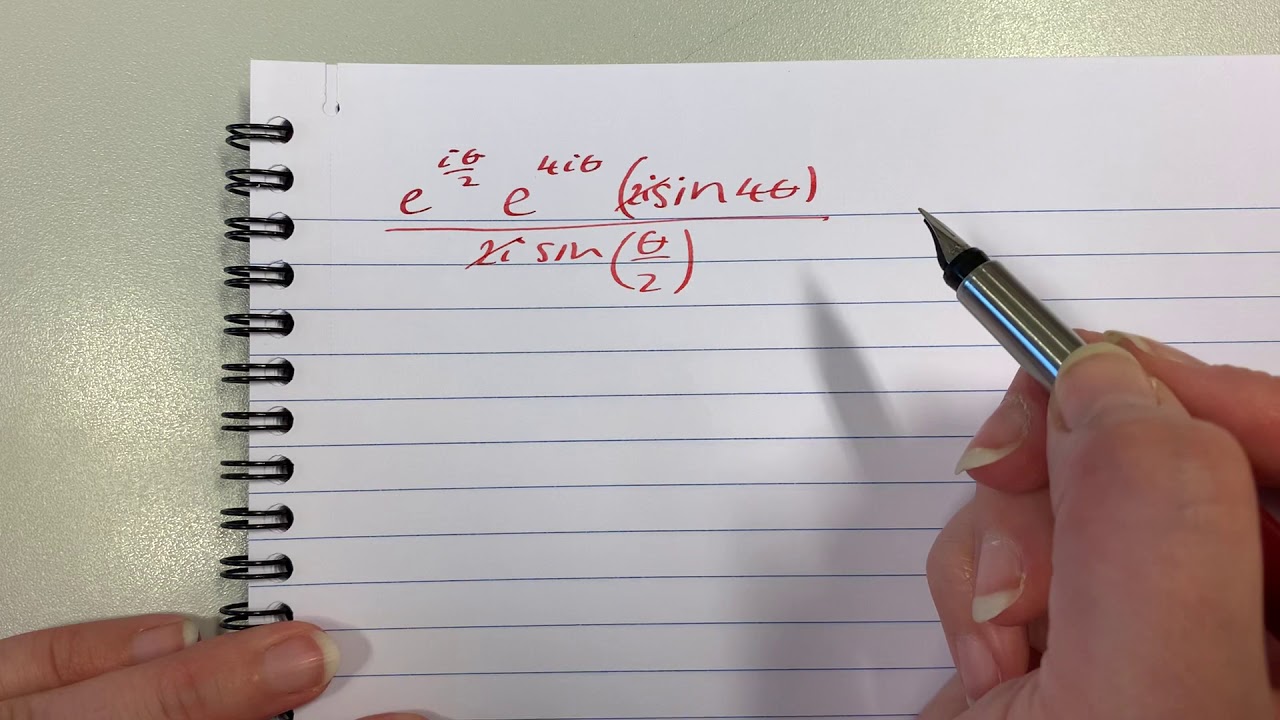 e^{iθ/2} e^{4iθ} (2i sin 4θ)
2i sin(θ/2)